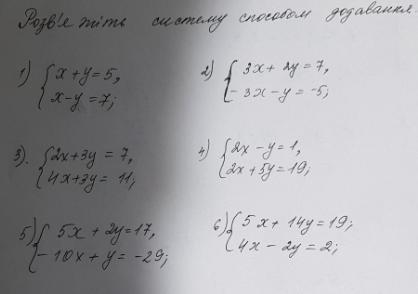 Розв'яжіть систему способом додавання.
1) { x + y = 5,
x - y = 7;
2) { 3x + 2y = 7,
- 3x - y = -5;
3). { 2x + 3y = 7,
4x + 3y = 11;
4) { 2x - y = 1,
2x + 5y = 19;
5) { 5x + 2y = 17,
- 10x + y = -29;
6) { 5x + 14y = 19;
4x - 2y = 2;